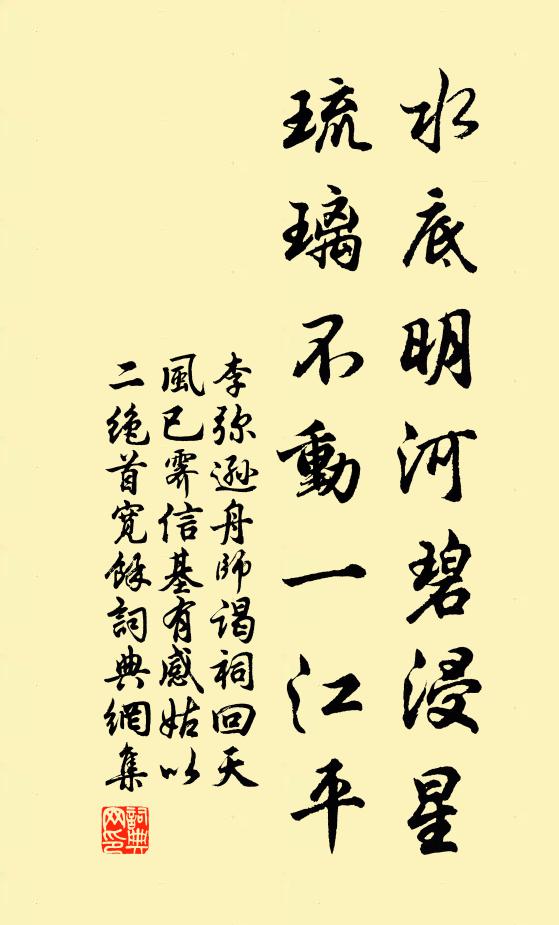 水底明河碧浸星
琉璃不動一江平
李弥遜舟師謁祠回天
風已霽信基有感姑以
二絶首寬餘詞典網集
詞典网印